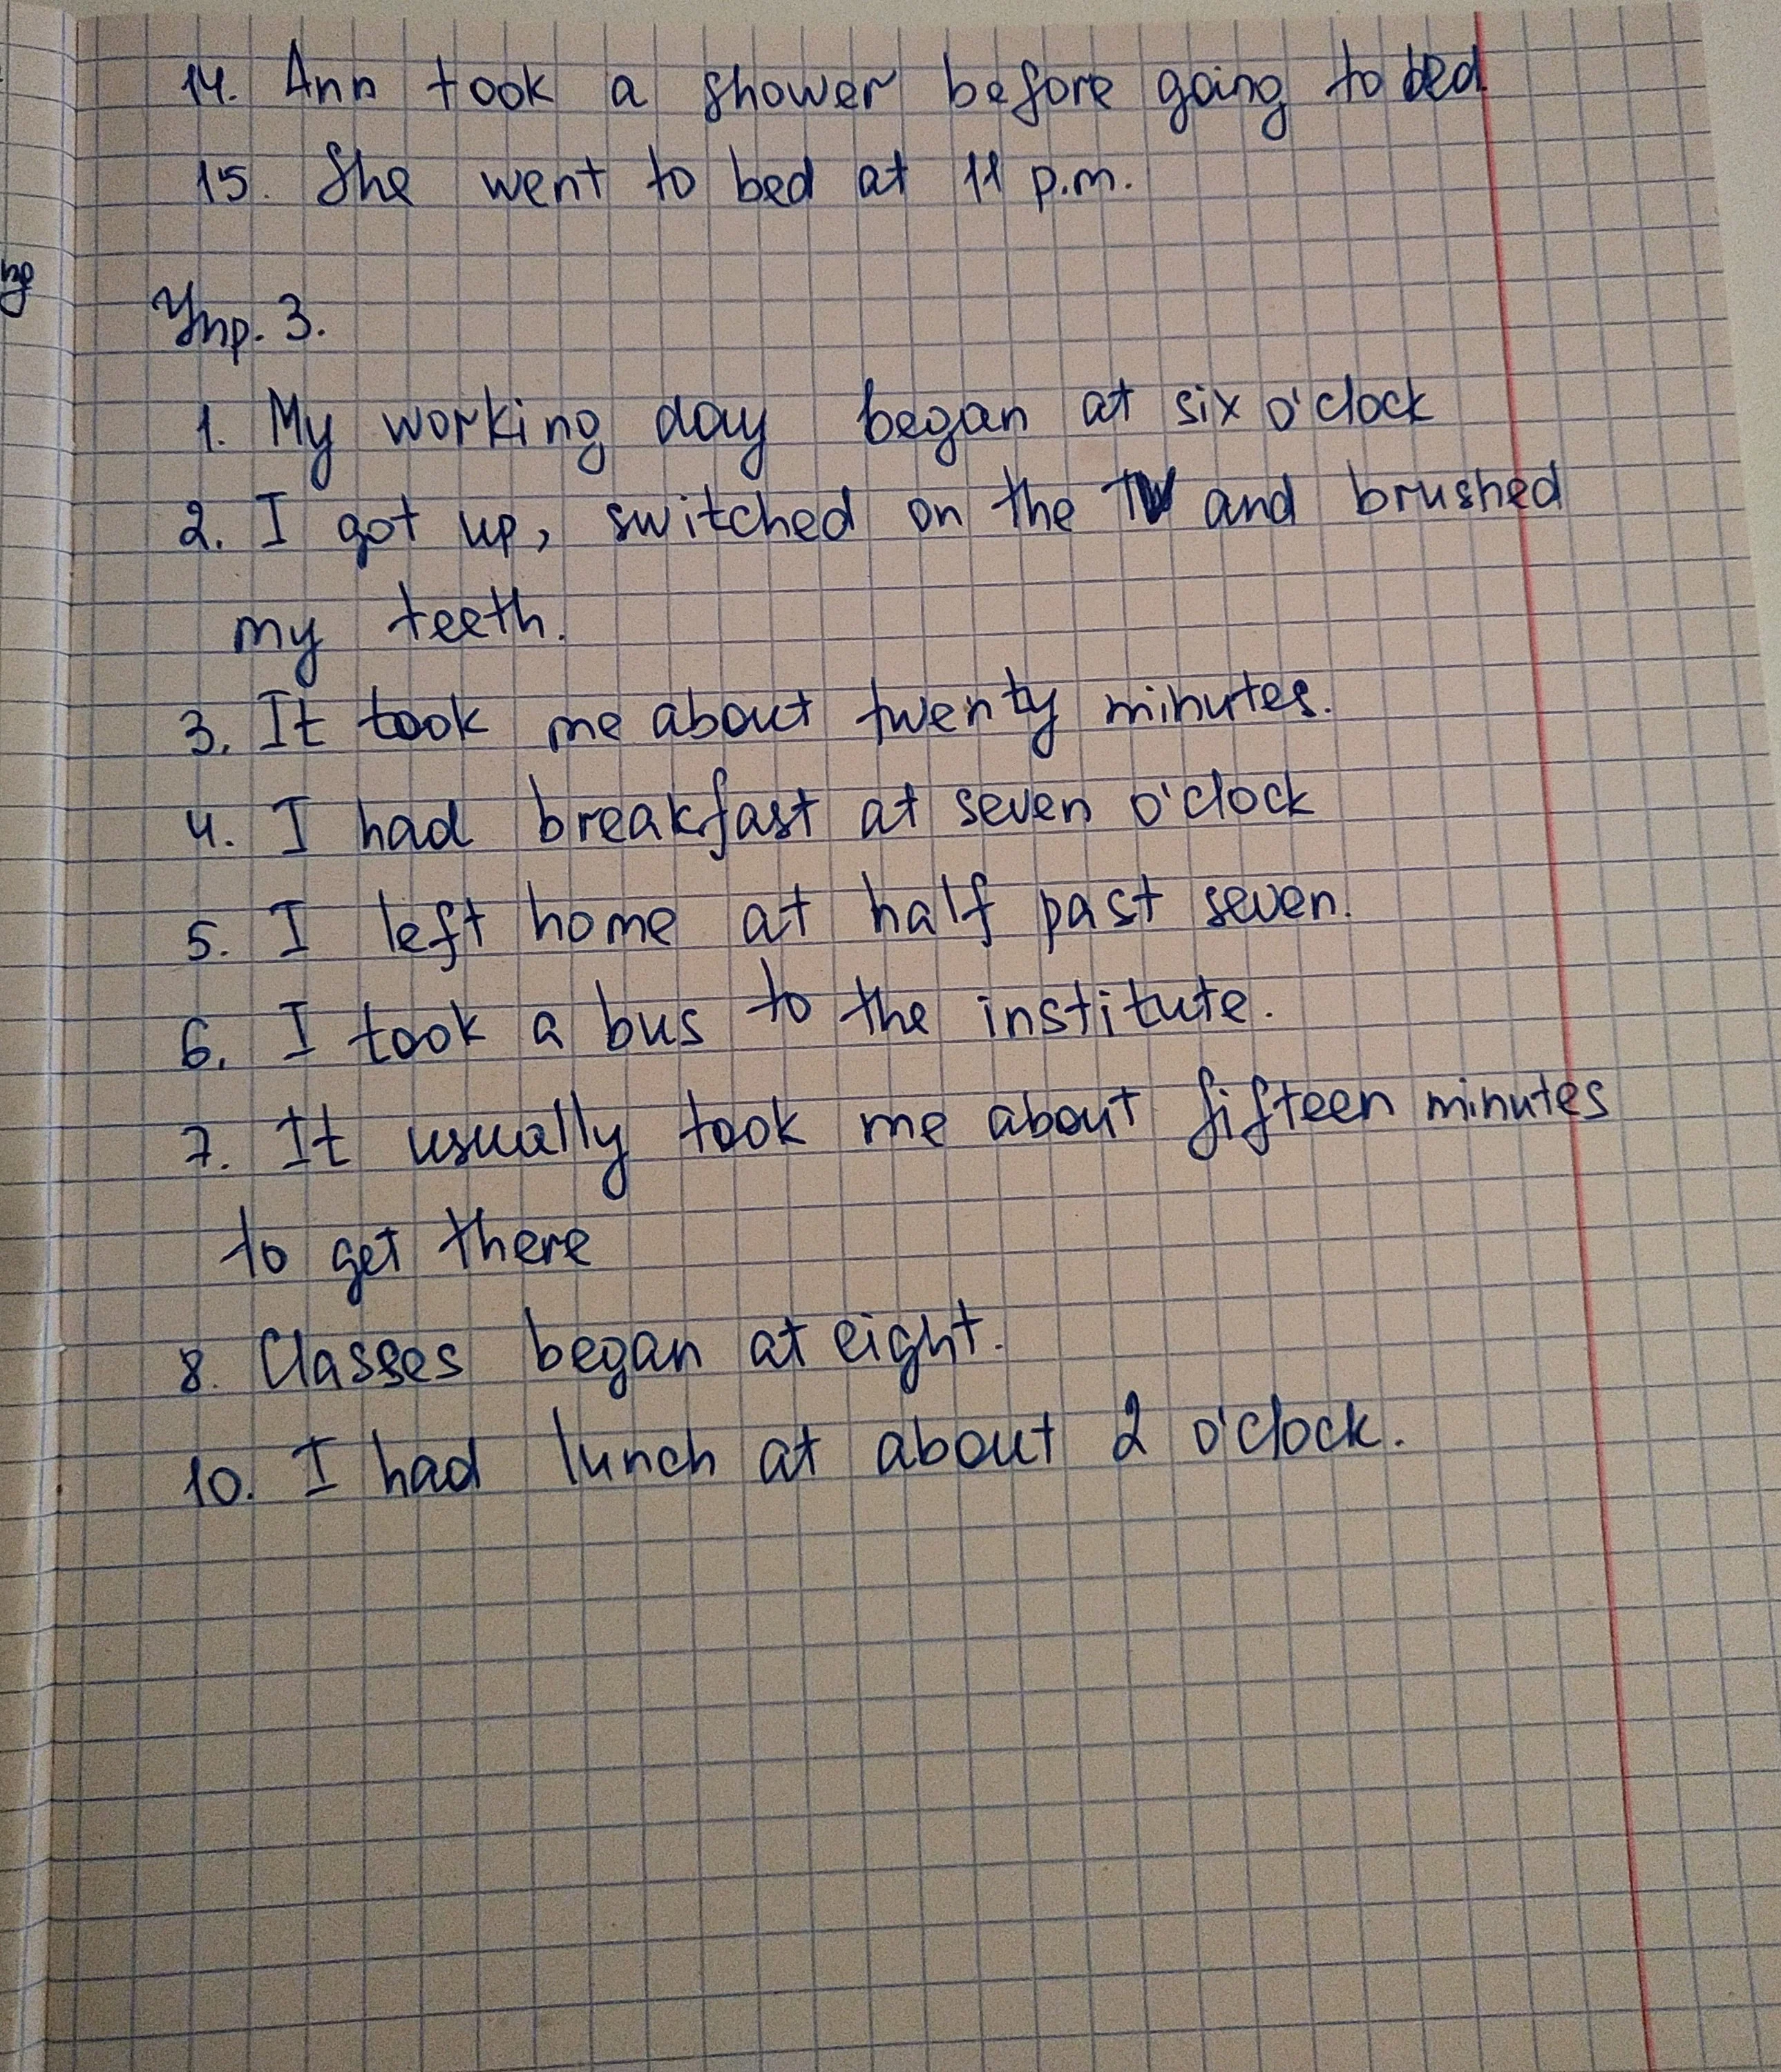 14. Ann took a shower before going to bed
15. She went to bed at 11 p.m.
Упр. 3.
1. My working day began at six o'clock
2. I got up, switched on the TV and brushed
my teeth.
3. It took me about twenty minutes.
4. I had breakfast at seven o'clock
5. I left home at half past seven.
6. I took a bus to the institute.
7. It usually took me about fifteen minutes
to get there
8. Classes began at eight.
10. I had lunch at about 2 o'clock.